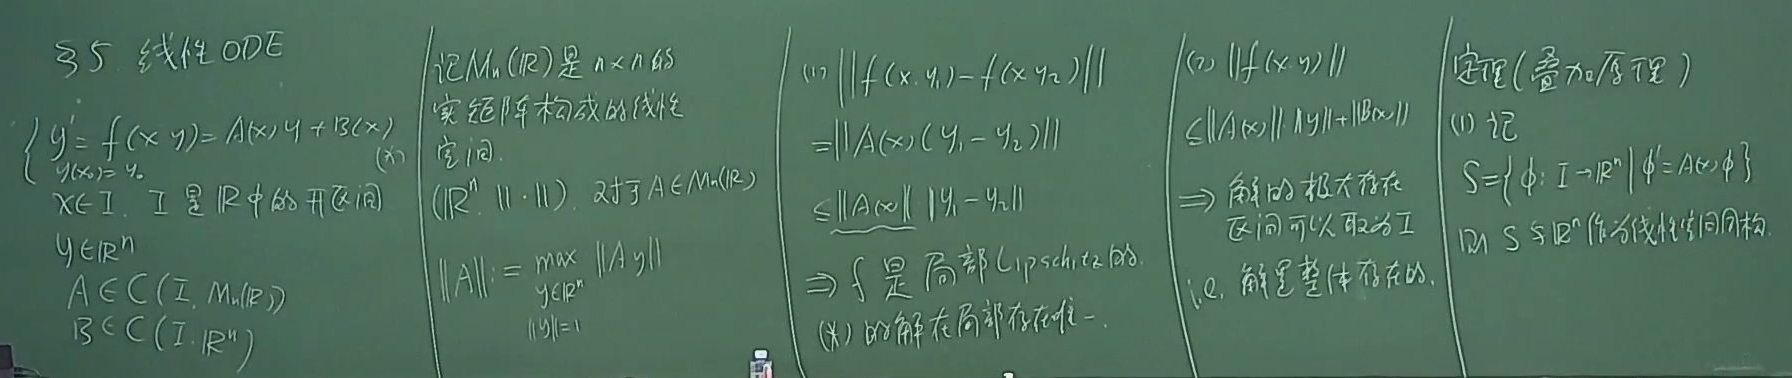 §5. 线性ODE
{ y' = f(x y) = A(x) y + B(x)
y(x₀) = y₀ (*)
x∈I. I 是 ℝ 中的开区间
y∈ℝⁿ
A ∈ C(I, Mₙ(ℝ))
B ∈ C(I. ℝⁿ)
记 Mₙ(ℝ) 是 n×n 的
实矩阵构成的线性
空间.
(ℝⁿ, ||·||). 对于 A∈Mₙ(ℝ)
||A|| := max ||Ay||
y∈ℝⁿ
||y||=1
(1) ||f(x. y₁) - f(x y₂)||
= ||A(x) (y₁ - y₂)||
≤ ||A(x)|| ||y₁ - y₂||
⇒ f 是局部 Lipschitz 的.
(*) 的解在局部存在唯一.
(2) ||f(x y)||
≤ ||A(x)|| ||y|| + ||B(x)||
⇒ 解的极大存在
区间可以取为 I
i.e. 解是整体存在的.
定理(叠加原理)
(1) 记
S = { φ: I → ℝⁿ | φ' = A(x) φ }
则 S 与 ℝⁿ 作为线性空间同构.